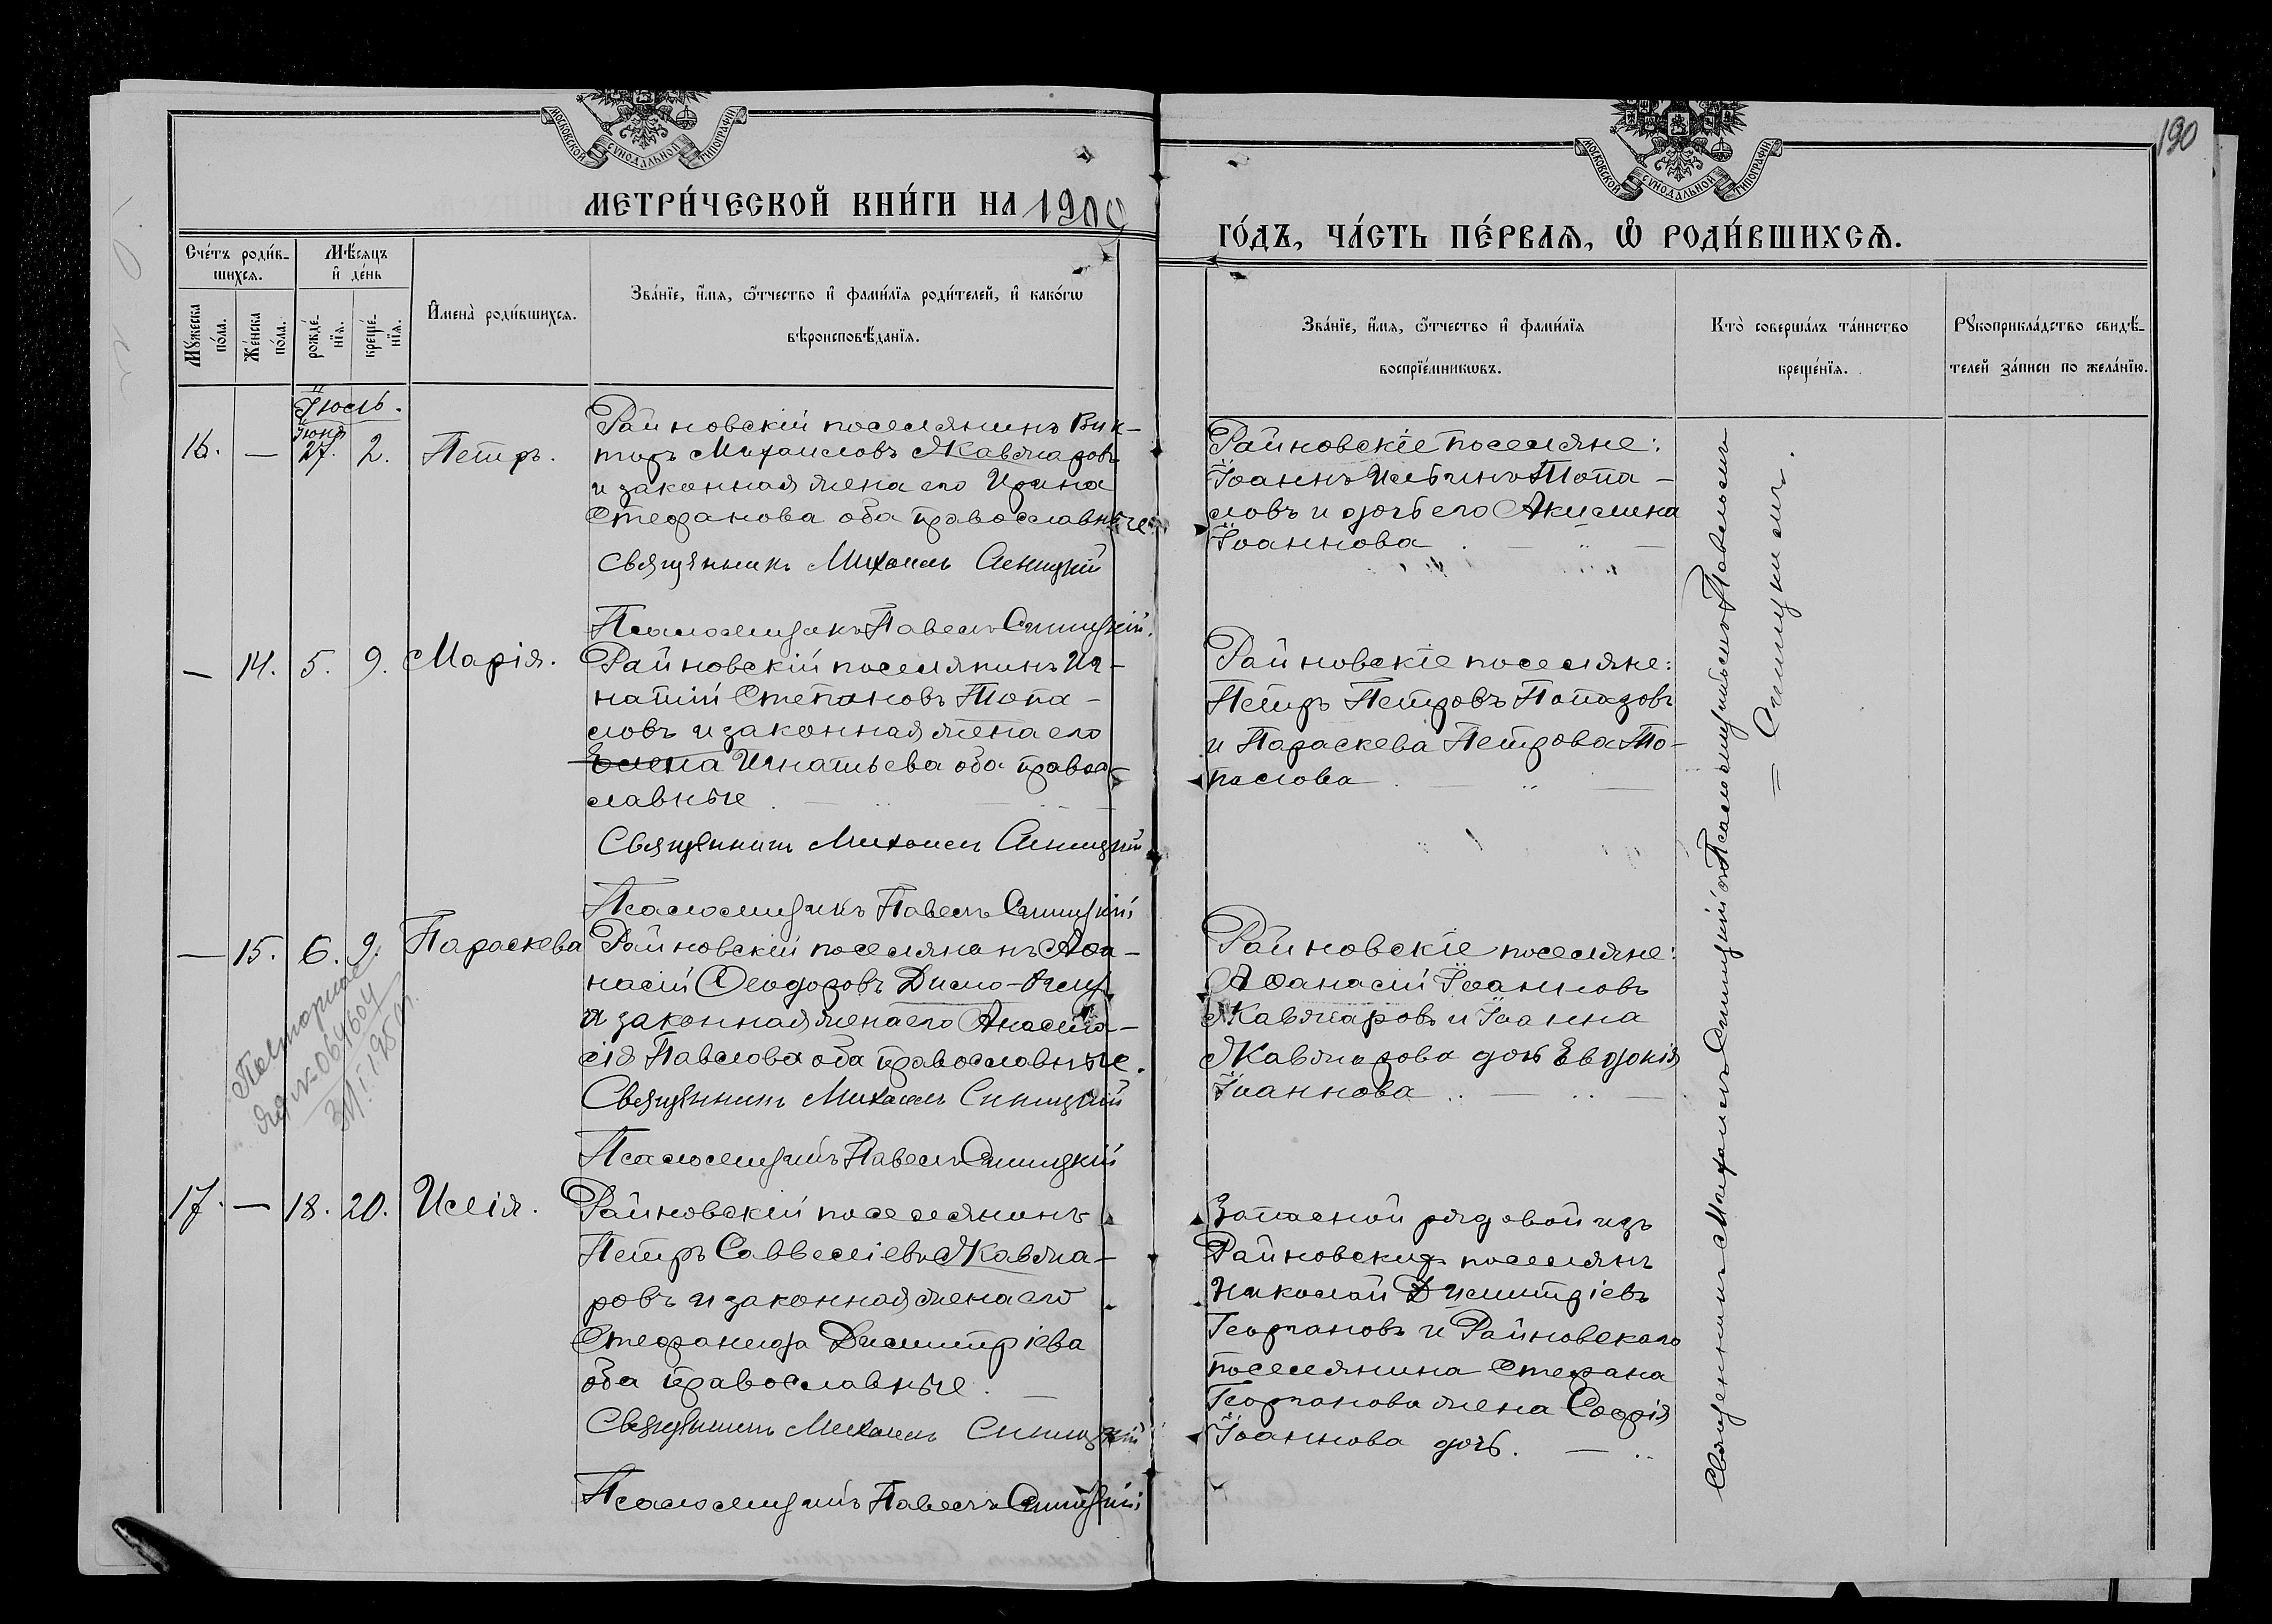 190
МОСКОВСКОЙ СѴНОДАЛЬНОЙ ТИПОГРАФІИ
МОСКОВСКОЙ СѴНОДАЛЬНОЙ ТИПОГРАФІИ
МЕТРИ́ЧЕСКОЙ КНИ́ГИ НА 1900
ГО́ДЪ, ЧА́СТЬ ПЕ́РВАЯ, Ѡ҆ РОДИ́ВШИХСѦ.
Сче́тъ роди́в-
шихсѧ.
Мѣ́сяцъ
и҆ де́нь
Мꙋ́жеска
по́ла.
Же́нска
по́ла.
рожде́-
нїѧ.
креще́-
нїѧ.
И҆мена̀ роди́вшихсѧ.
Зва́нїе, и҆́мѧ, ѻ҆́тчество и҆ фами́лїѧ роди́телей, и҆ како́гѡ
вѣроисповѣ́данїѧ.
Зва́нїе, и҆́мѧ, ѻ҆́тчество и҆ фами́лїѧ
воспрїе́мникѡвъ.
Кто̀ соверша́лъ та́инство
креще́нїѧ.
Рꙋкоприкла́дство свидѣ́-
телей за́писи по жела́нїю.
Іюль.
Іюня
16. — 27. 2. Петръ.
Райновскій поселянинъ Вик-
торъ Михаиловъ Жавжаровъ
и законная жена его Ирина
Стефанова оба православные
Священникъ Михаилъ Синицкій
Псаломщикъ Павелъ Синицкій.
Райновскіе поселяне:
Іоаннъ Ильинъ Топа-
ловъ и дочь его Акилина
Іоаннова
— 14. 5. 9. Марія.
Райновскій поселянинъ Иг-
натій Степановъ Топа-
ловъ и законная жена его
Елена Игнатьева оба право-
славные
Священникъ Михаилъ Синицкій
Псаломщикъ Павелъ Синицкій
Райновскіе поселяне:
Петръ Петровъ Попазовъ
и Параскева Петрова То-
палова
— 15. 6. 9. Параскева
Райновскій поселянинъ Аѳа-
насій Ѳеодоровъ Димо-
и законная жена его Анаста-
сія Павлова оба православные.
Священникъ Михаилъ Синицкій
Псаломщикъ Павелъ Синицкій
Райновскіе поселяне:
Аѳанасій Іоанновъ
Жавжаровъ и Іоанна
Жавжарова дочь Евдокія
Іоаннова
Повторное
064604
17. — 18. 20. Илія.
Райновскій поселянинъ
Петръ Саввеліевъ Жавжа-
ровъ и законная жена его
Стефанида Димитріева
оба православные.
Священникъ Михаилъ Синицкій
Псаломщикъ Павелъ Синицкій
Запасной рядовой изъ
Райновскихъ поселянъ
Николай Димитріевъ
Георгановъ и Райновскаго
поселянина Стефана
Георганова жена Софія
Іоаннова дочь.
Священникъ Михаилъ Синицкій съ Псаломщикомъ Павломъ
= Синицкимъ.